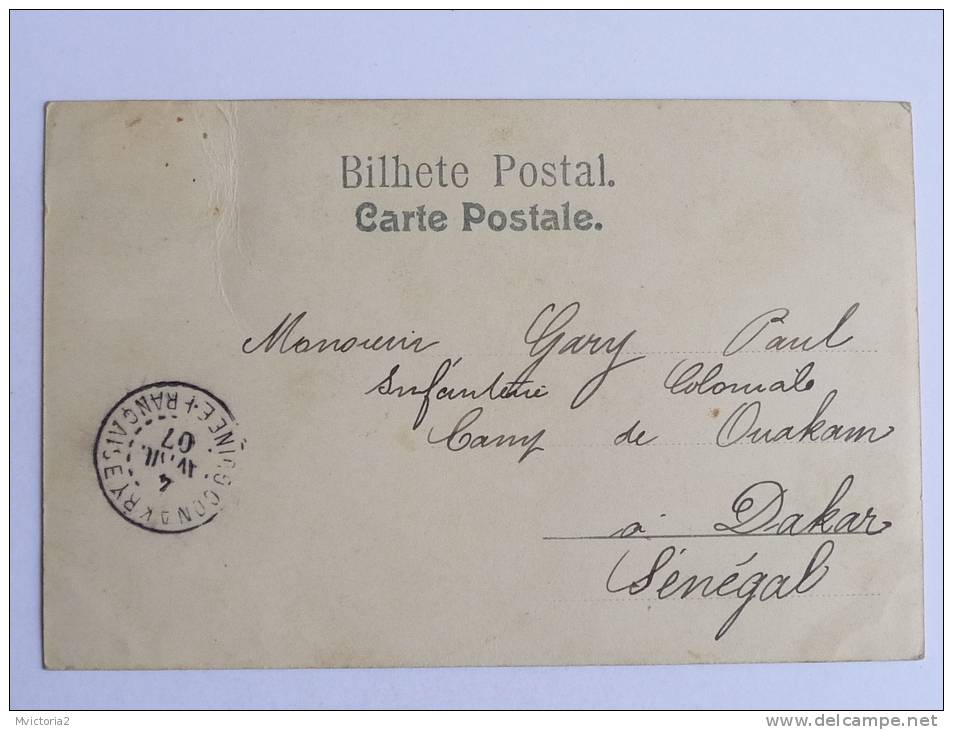 Bilhete Postal.
Carte Postale.
Monsieur Gary Paul
Infanterie Coloniale
Camp de Ouakam
à Dakar
Sénégal
CONAKRY
GUINÉE FRANÇAISE
4
AVRIL
07
Mvictoria2
www.delcampe.net